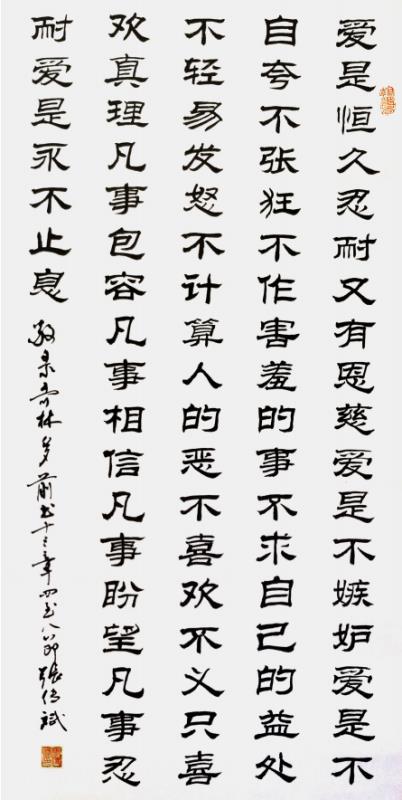 爱是恒久忍耐又有恩慈爱是不嫉妒爱是不
自夸不张狂不作害羞的事不求自己的益处
不轻易发怒不计算人的恶不喜欢不义只喜
欢真理凡事包容凡事相信凡事盼望凡事忍
耐爱是永不止息
敬录哥林多前书十三章四至八节 張斌